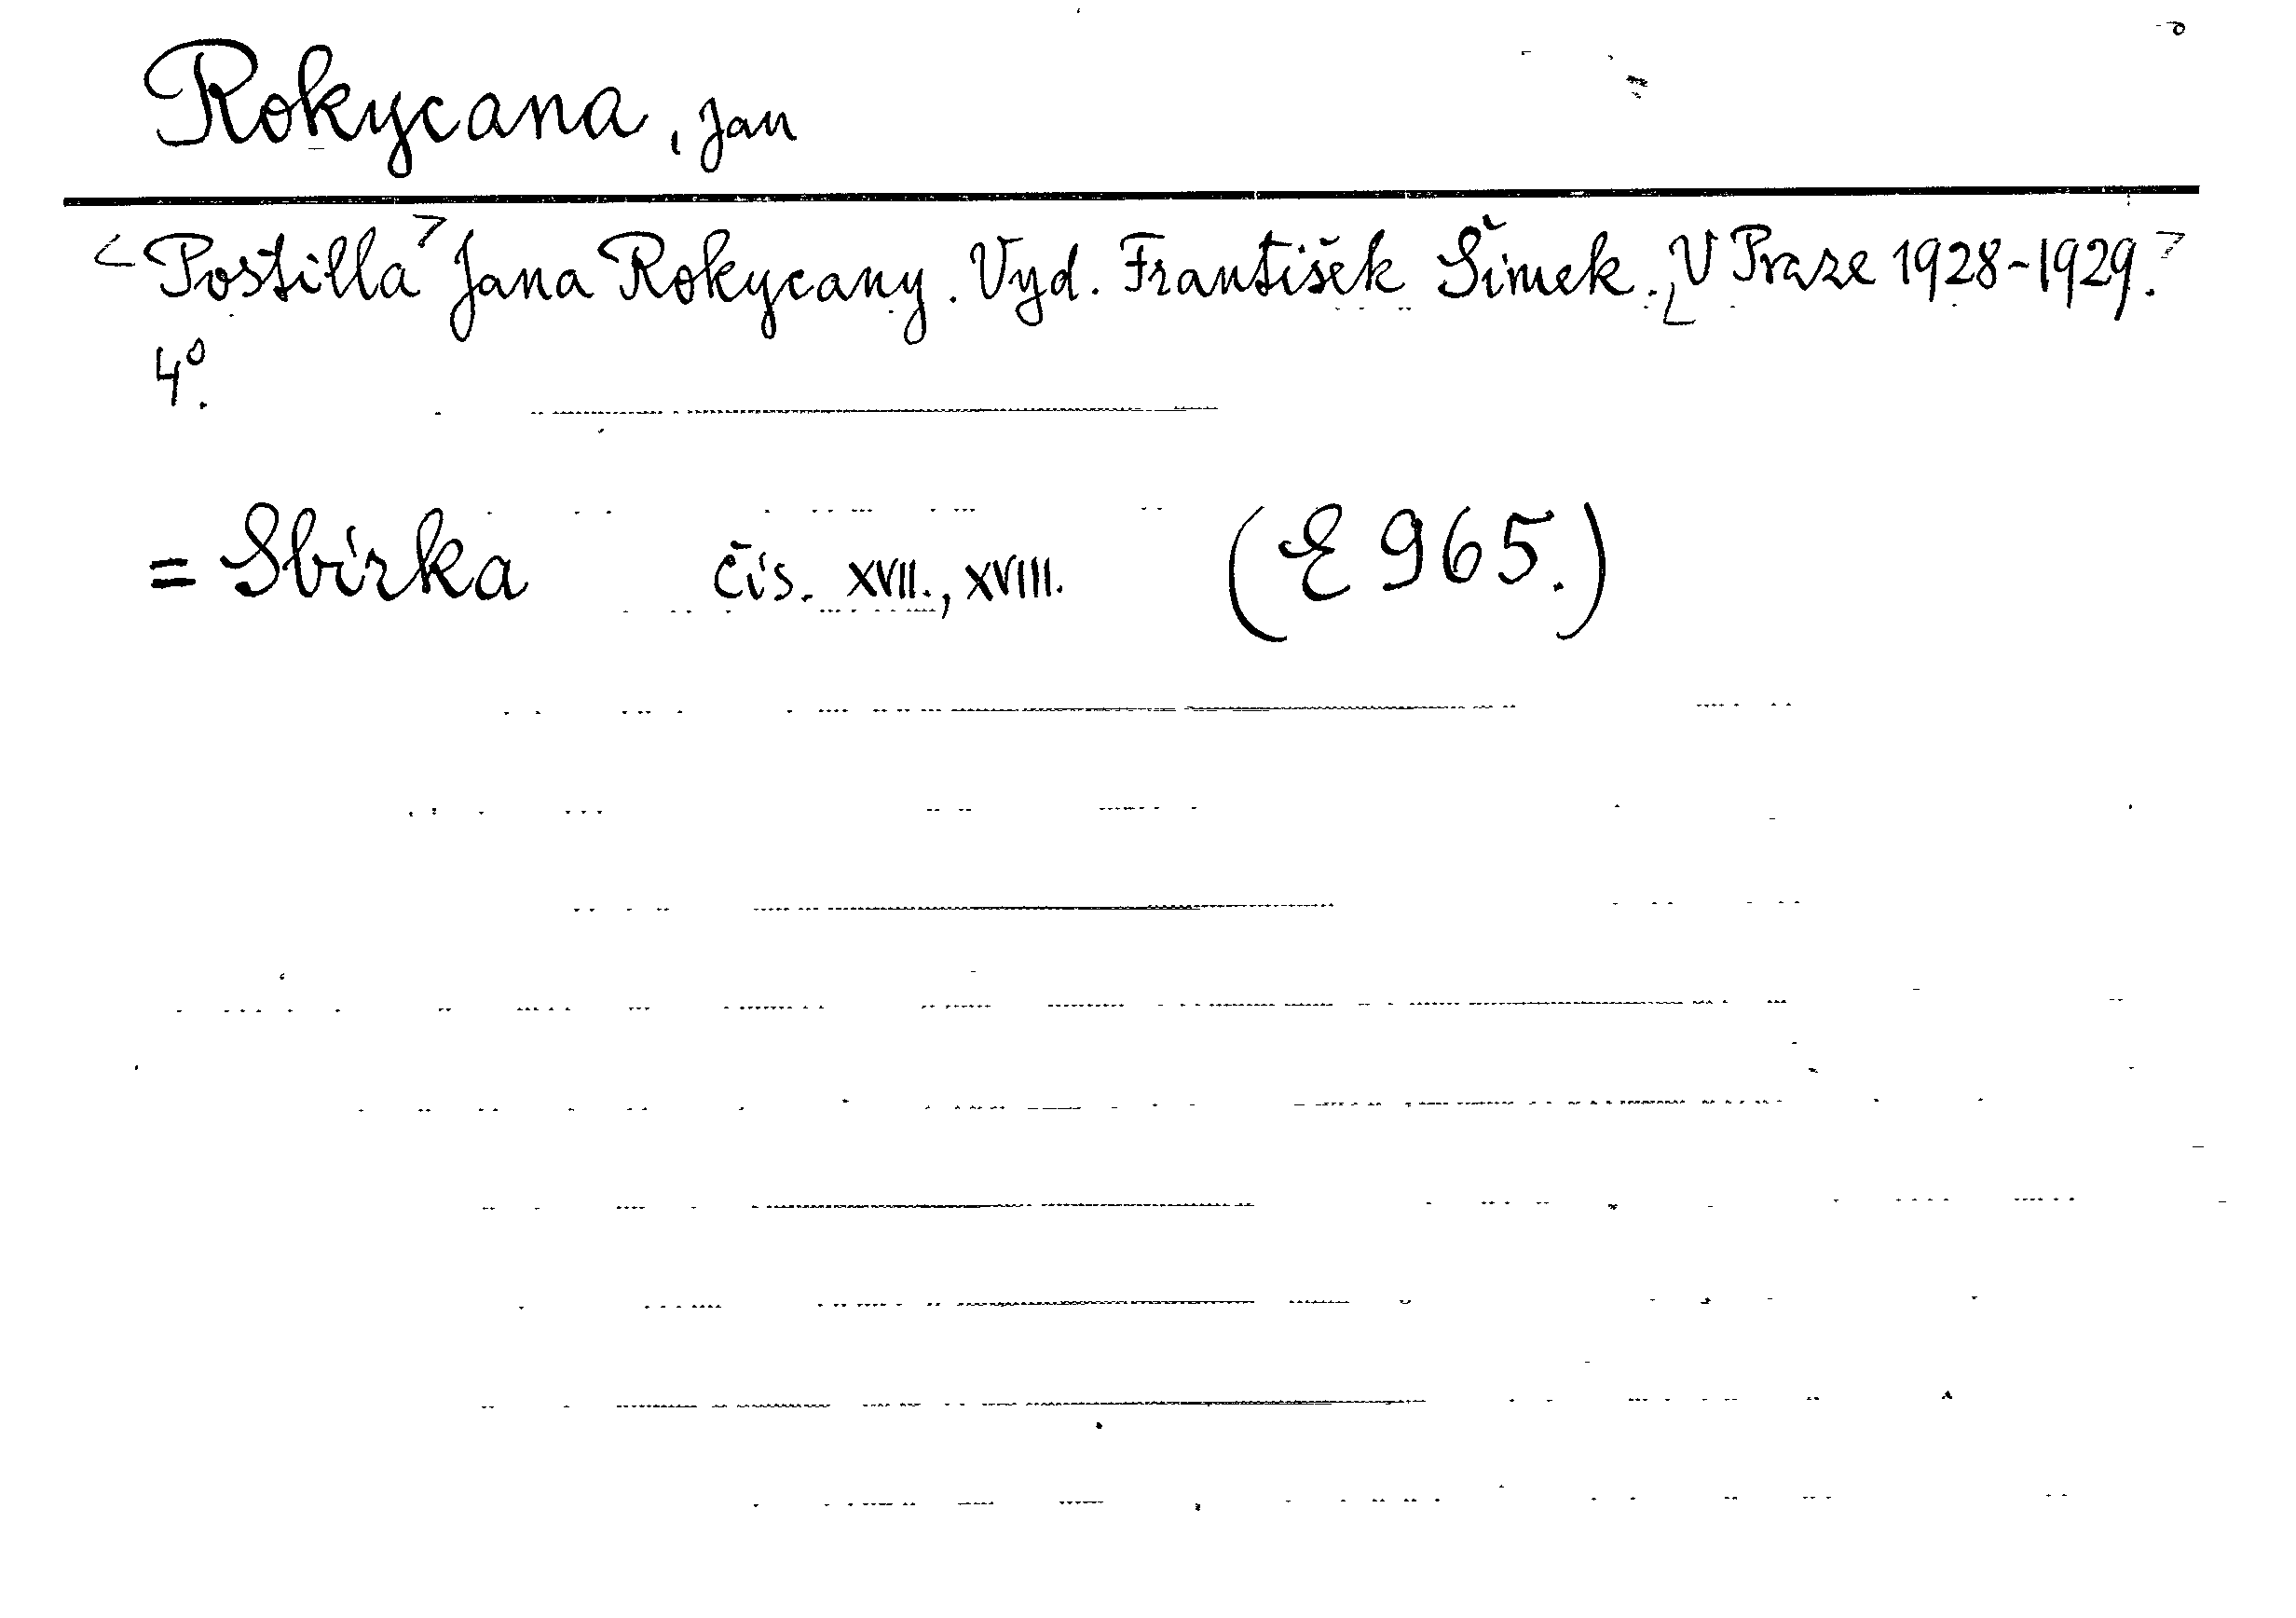 Rokycana, Jan
<Postilla> Jana Rokycany. Vyd. František Šimek. <V Praze 1928-1929.>
4°.
= Sbírka čís. XVII., XVIII. (E 965.)